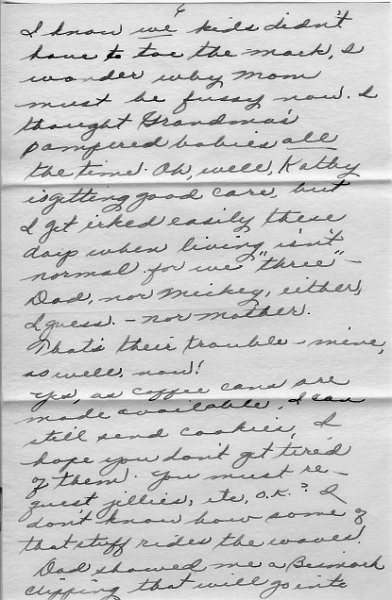 6
I know we kids didn't
have to toe the mark, I
wonder why Mom
must be fussy now. I
thought Grandma's
pampered babies all
the time. Oh, well, Kathy
is getting good care, but
I get irked easily these
days when living isn't
normal for we "three" -
Dad, nor Mickey, either,
I guess. - nor Mother.
That's their trouble - mine,
as well, now!
Yes, as coffee cans are
made available, I can
still send cookies, I
hope you don't get tired
of them. You must re-
quest jellies, etc, O.K.? I
don't know how some of
that stuff rides the waves.
Dad showed me a Bismark
clipping that will go into